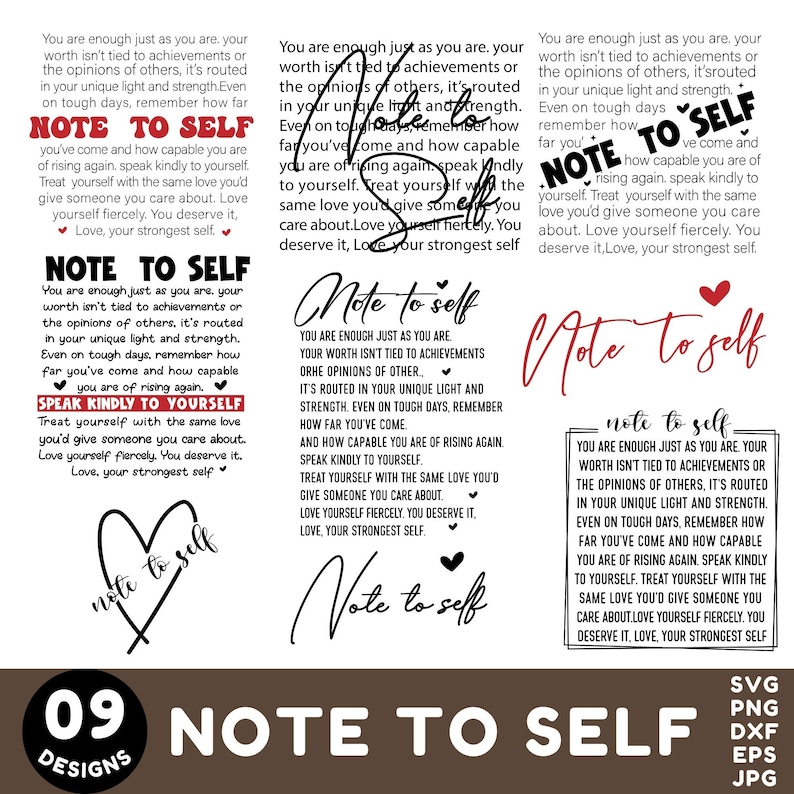 You are enough just as you are. your
worth isn't tied to achievements or
the opinions of others, it's routed
in your unique light and strength.Even
on tough days, remember how far
NOTE TO SELF
you've come and how capable you are
of rising again. speak kindly to yourself.
Treat yourself with the same love you'd
give someone you care about. Love
yourself fiercely. You deserve it,
Love, your strongest self.
You are enough just as you are. your
worth isn't tied to achievements or
the opinions of others, it's routed
in your unique light and strength.
Even on tough days, remember how
far you've come and how capable
you are of rising again. speak kindly
to yourself. Treat yourself with the
same love you'd give someone you
care about.Love yourself fiercely. You
deserve it, Love, your strongest self
Note to
Self
You are enough just as you are. your
worth isn't tied to achievements or
the opinions of others, it'srouted
in your unique light and strength.
Even on tough days
remember how
far you' ve come and
NOTE TO SELF
how capable you are of
rising again. speak kindly to
yourself. Treat yourself with the same
love you'd give someone you care
about. Love yourself fiercely. You
deserve it,Love, your strongest self.
NOTE TO SELF
You are enough just as you are. your
worth isn't tied to achievements or
the opinions of others, it's routed
in your unique light and strength.
Even on tough days, remember how
far you've come and how capable
you are of rising again.
SPEAK KINDLY TO YOURSELF
Treat yourself with the same love
you'd give someone you care about.
Love yourself fiercely. You deserve it,
Love, your strongest self
Note to self
YOU ARE ENOUGH JUST AS YOU ARE.
YOUR WORTH ISN'T TIED TO ACHIEVEMENTS
ORHE OPINIONS OF OTHER.,
IT'S ROUTED IN YOUR UNIQUE LIGHT AND
STRENGTH. EVEN ON TOUGH DAYS, REMEMBER
HOW FAR YOU'VE COME.
AND HOW CAPABLE YOU ARE OF RISING AGAIN.
SPEAK KINDLY TO YOURSELF.
TREAT YOURSELF WITH THE SAME LOVE YOU'D
GIVE SOMEONE YOU CARE ABOUT.
LOVE YOURSELF FIERCELY. YOU DESERVE IT,
LOVE, YOUR STRONGEST SELF.
Note to self
note to self
YOU ARE ENOUGH JUST AS YOU ARE. YOUR
WORTH ISN'T TIED TO ACHIEVEMENTS OR
THE OPINIONS OF OTHERS, IT'S ROUTED
IN YOUR UNIQUE LIGHT AND STRENGTH.
EVEN ON TOUGH DAYS, REMEMBER HOW
FAR YOU'VE COME AND HOW CAPABLE
YOU ARE OF RISING AGAIN. SPEAK KINDLY
TO YOURSELF. TREAT YOURSELF WITH THE
SAME LOVE YOU'D GIVE SOMEONE YOU
CARE ABOUT.LOVE YOURSELF FIERCELY. YOU
DESERVE IT, LOVE, YOUR STRONGEST SELF
note to self
Note to self
09
DESIGNS
NOTE TO SELF
SVG
PNG
DXF
EPS
JPG